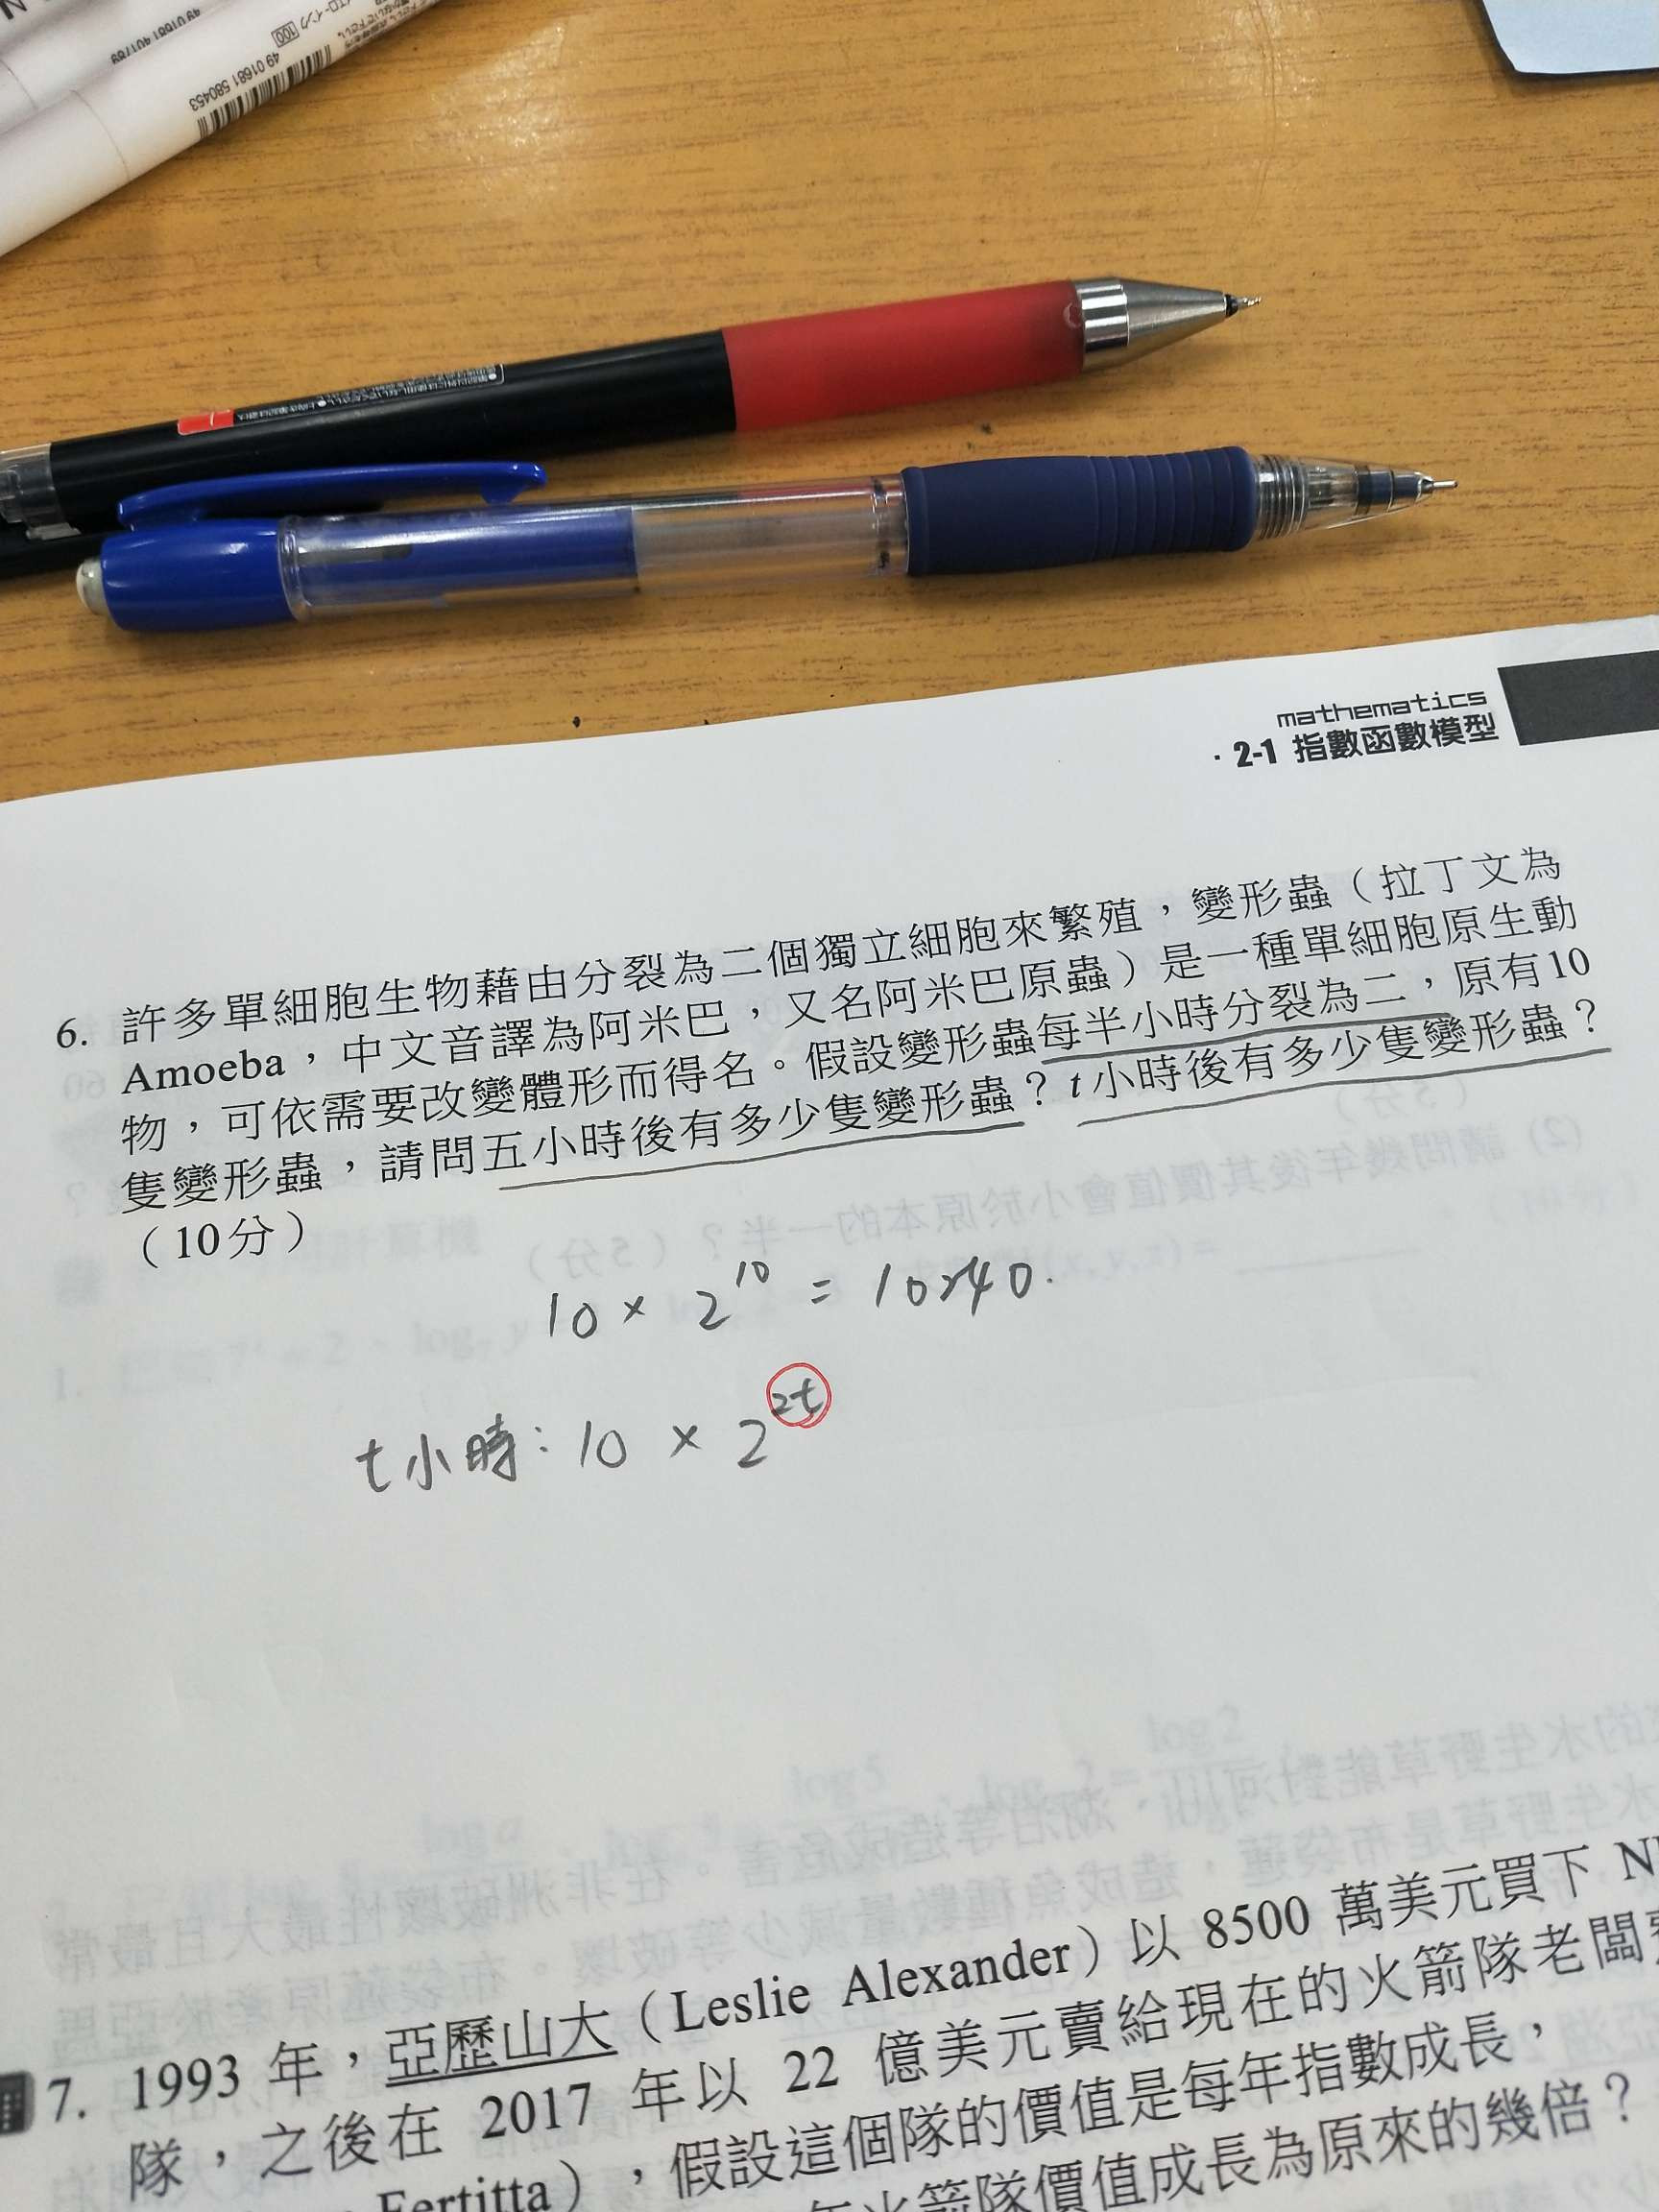 49 01681 401769
49 01681 580453
100
mathematics
· 2-1 指數函數模型
6. 許多單細胞生物藉由分裂為二個獨立細胞來繁殖，變形蟲（拉丁文為
Amoeba，中文音譯為阿米巴，又名阿米巴原蟲）是一種單細胞原生動
物，可依需要改變體形而得名。假設變形蟲每半小時分裂為二，原有10
隻變形蟲，請問五小時後有多少隻變形蟲？t小時後有多少隻變形蟲？
（10分）
10 × 2^10 = 10240.
t小時: 10 × 2^2t
7. 1993 年，亞歷山大（Leslie Alexander）以 8500 萬美元買下 N
隊，之後在 2017 年以 22 億美元賣給現在的火箭隊老闆
Fertitta），假設這個隊的價值是每年指數成長，
年火箭隊價值成長為原來的幾倍？